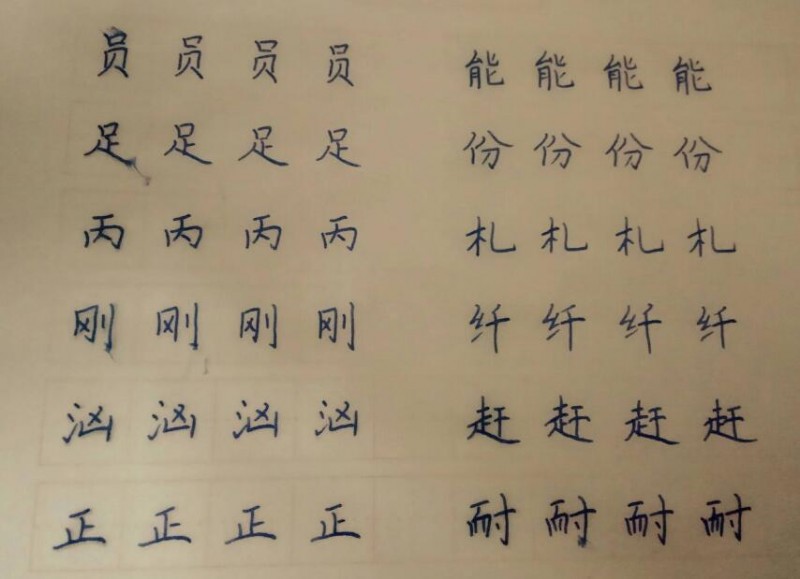 员 员 员 员 能 能 能 能
足 足 足 足 份 份 份 份
丙 丙 丙 丙 札 札 札 札
刚 刚 刚 刚 纤 纤 纤 纤
汹 汹 汹 汹 赶 赶 赶 赶
正 正 正 正 耐 耐 耐 耐